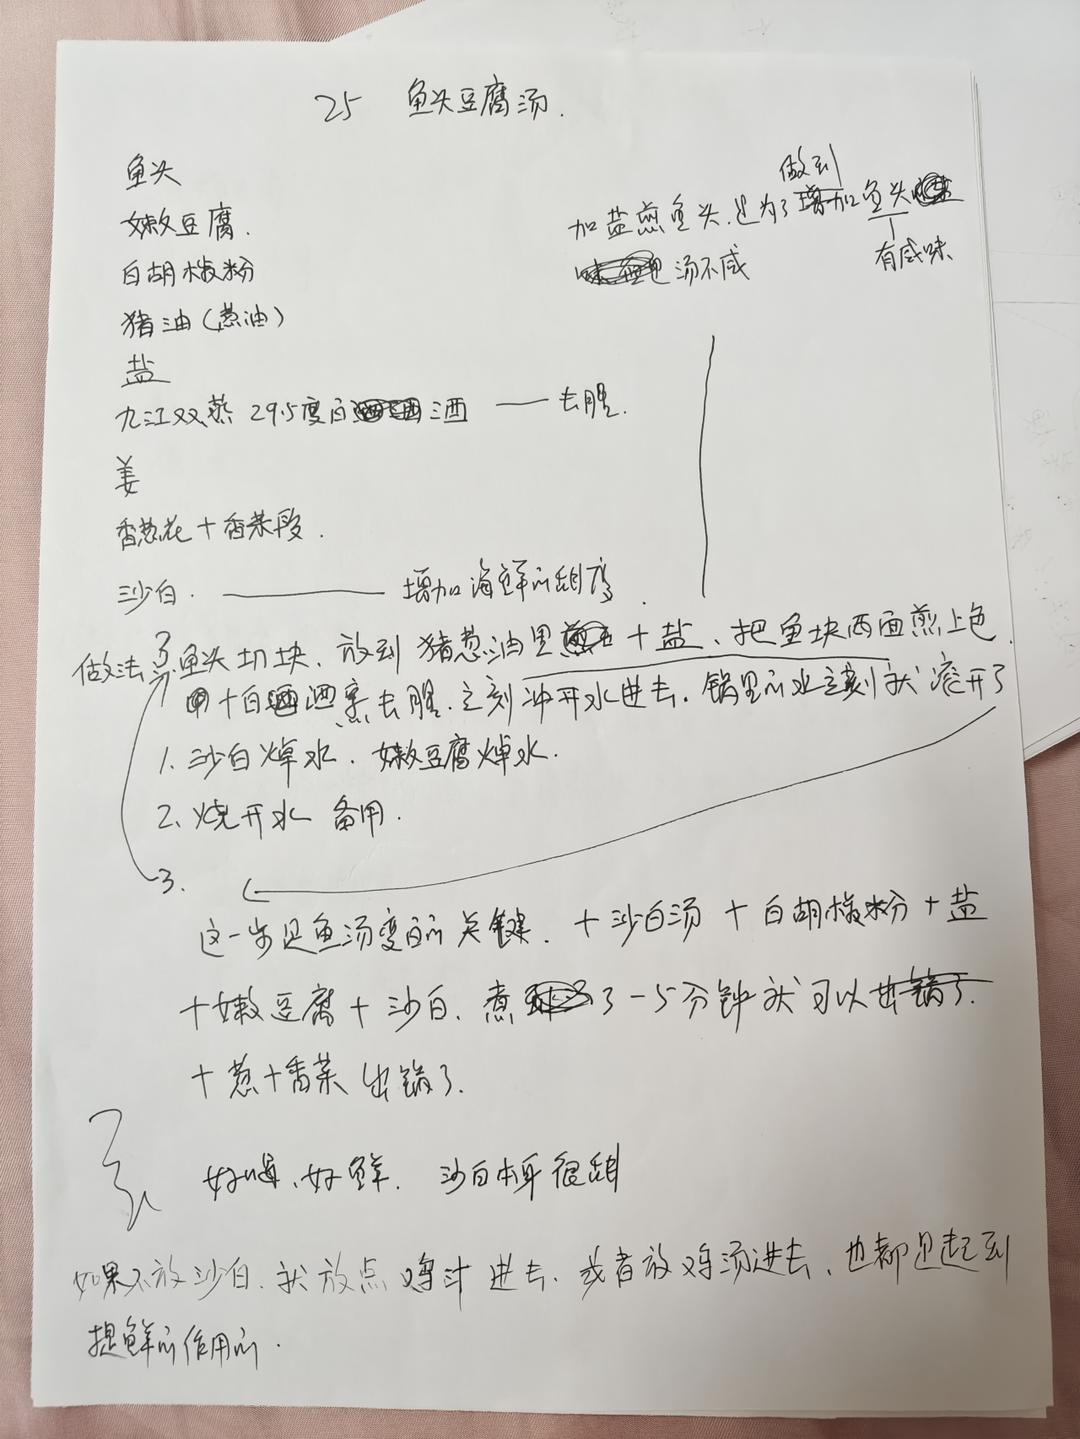 25 鱼头豆腐汤.
鱼头
嫩豆腐.
白胡椒粉
猪油(葱油)
盐
九江双蒸 29.5度白酒 —— 去腥.
姜
香葱花+香菜段.
沙白. ———— 增加海鲜的甜度.
做到
加盐煎鱼头.是为了增加鱼头
有咸味
汤不咸
做法: 鱼头切块、放到猪葱油里+盐、把鱼块两面煎上色.
+白酒 去腥.立刻冲开水进去.锅里的水立刻就滚开了
1. 沙白焯水.嫩豆腐焯水.
2. 烧开水 备用.
3.
这一步是鱼汤变白的关键.+沙白汤+白胡椒粉+盐
+嫩豆腐+沙白.煮 3-5分钟就可以出锅了.
+葱+香菜 出锅了.
好喝、好鲜. 沙白本身很甜
如果不放沙白.就放点鸡汁进去.或者放鸡汤进去、也都是起到
提鲜的作用的.